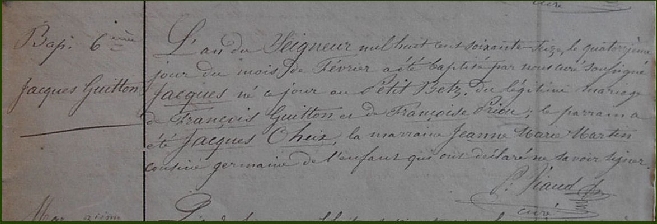 curé
Bap. 6ème
Jacques Guitton
L'an du Seigneur mil huit cent soixante seize, le quatorzième
jour du mois de Février a été baptisé par nous curé soussigné
Jacques né ce jour au petit Betz, du légitime mariage
de François Guitton et de Françoise Priou; le parrain a
été Jacques Cheix, la marraine Jeanne Marie Martin
cousine germaine de l'enfant qui ont déclaré ne savoir signer.
P. Siaud
curé